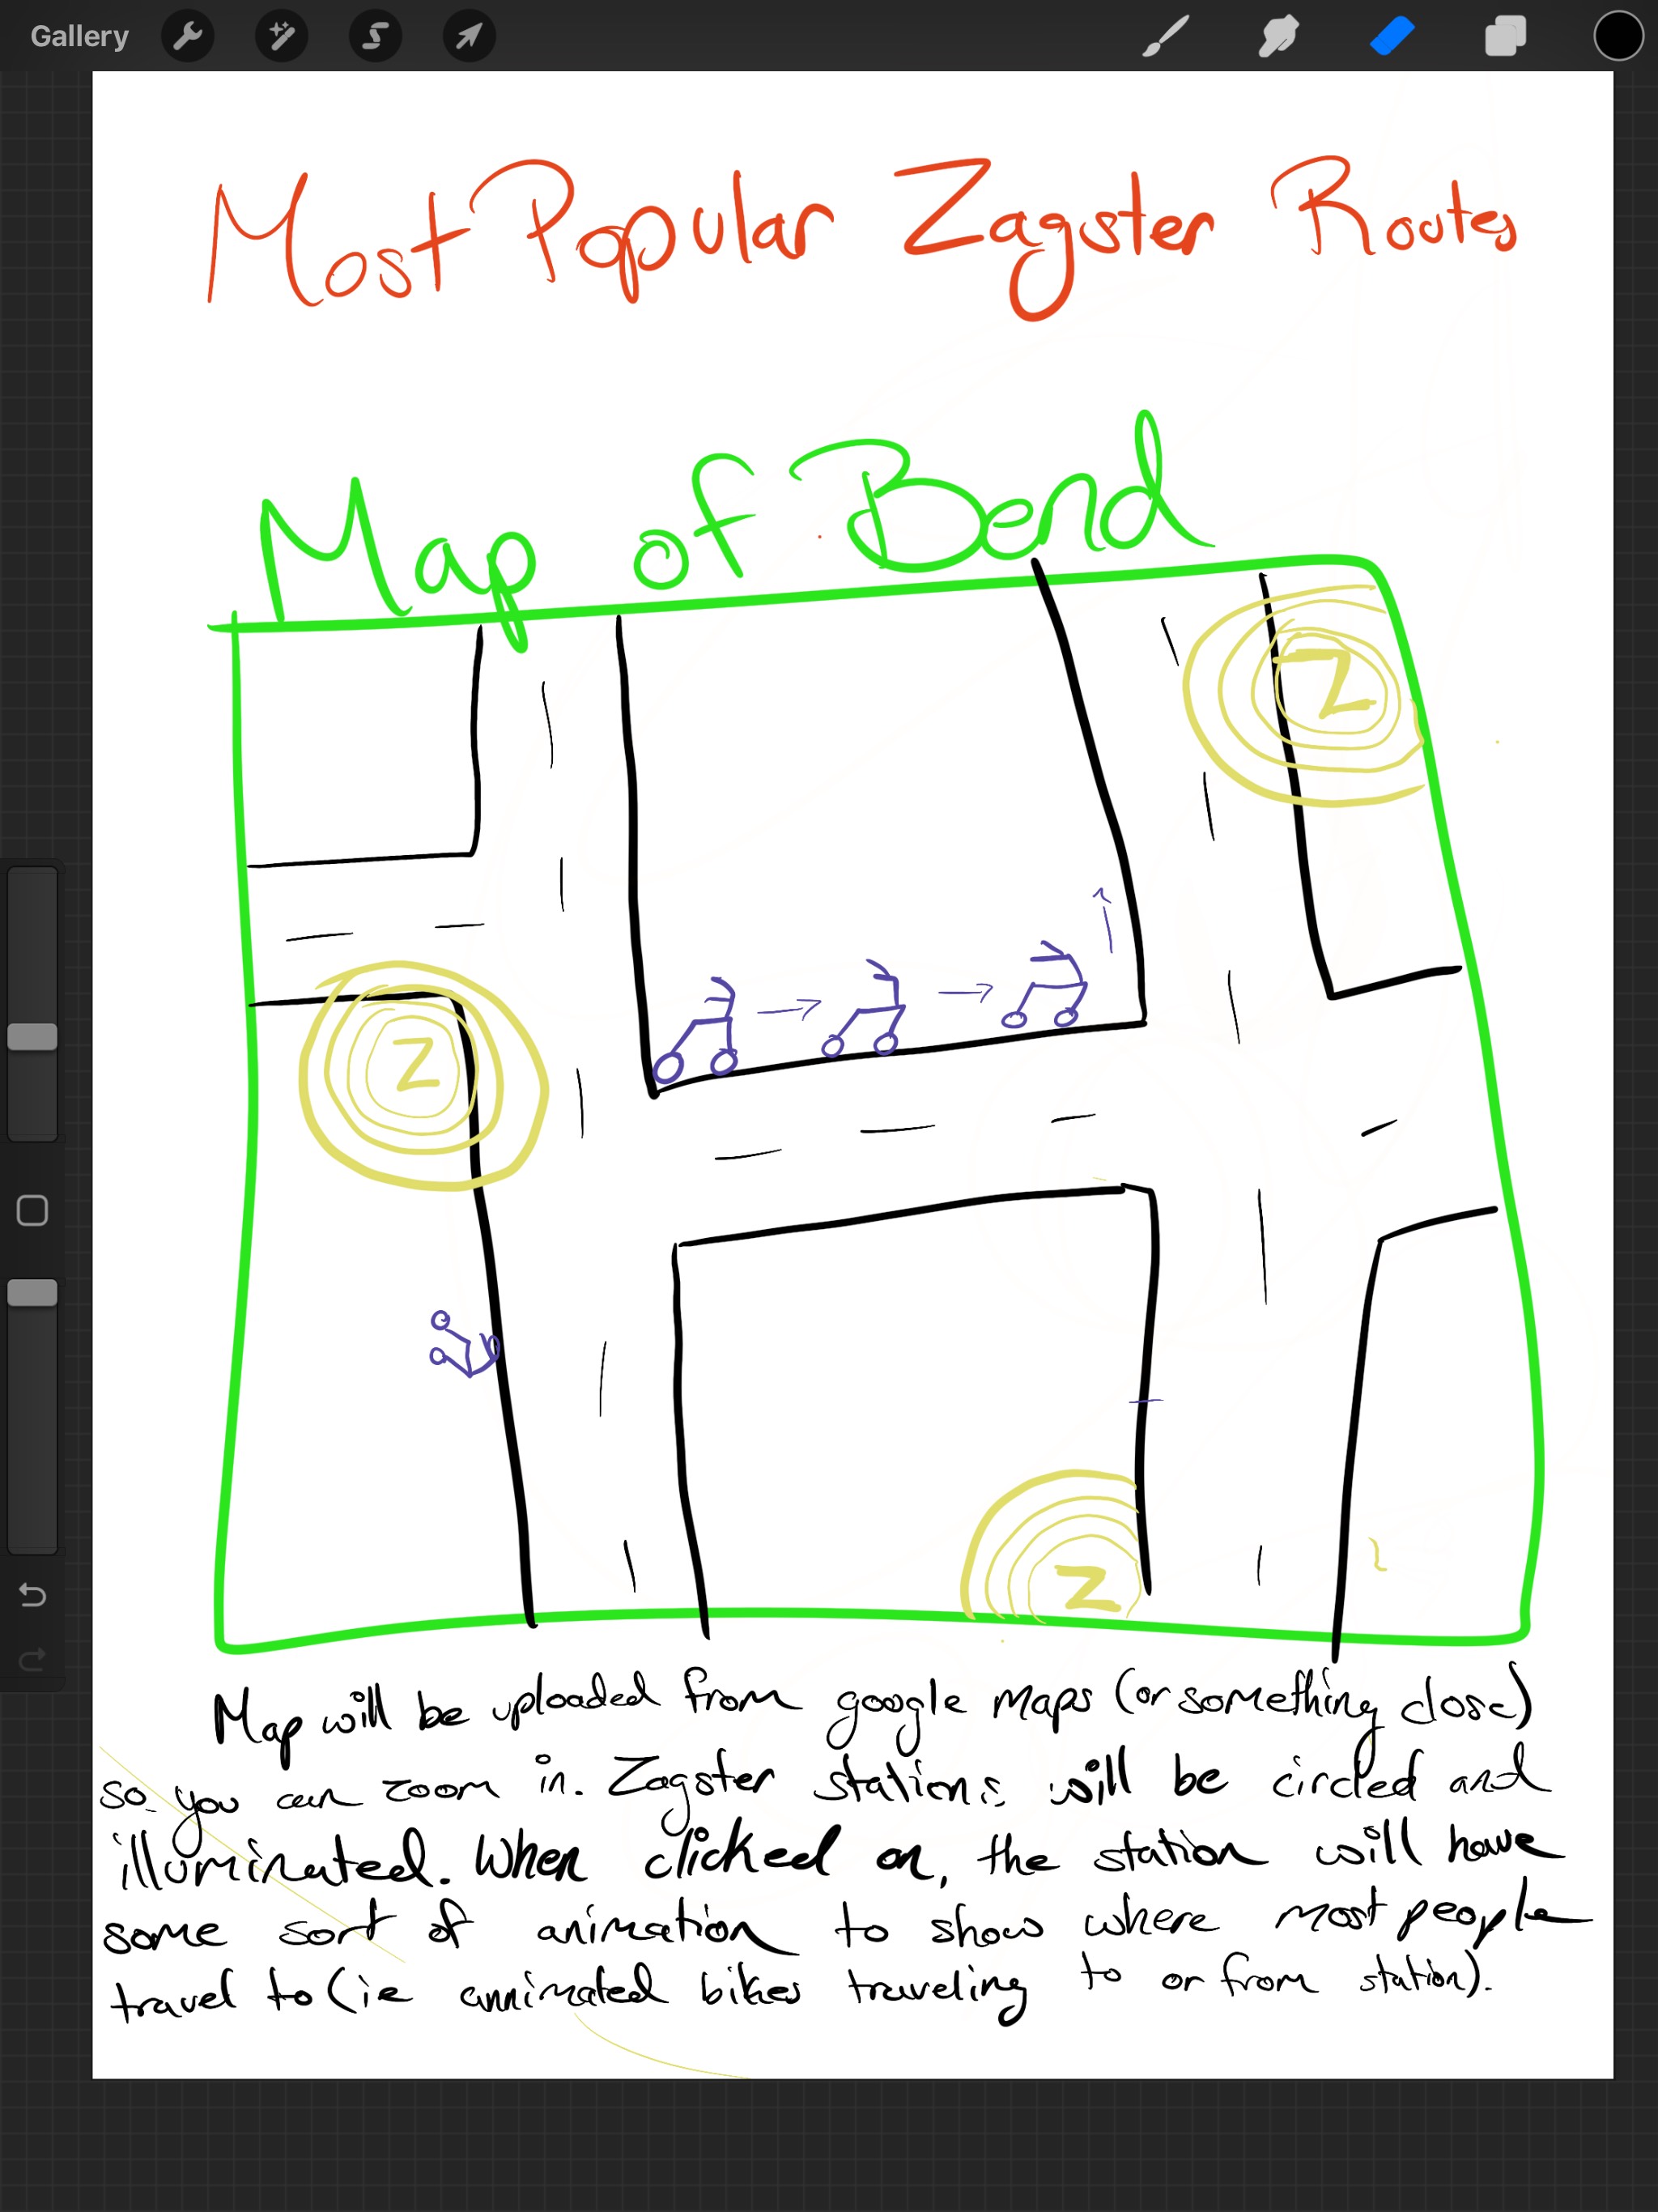 Gallery
Most Popular Zagster Routes
Map of Bend
Z
Z
Z
Map will be uploaded from google maps (or something close)
so you can zoom in. Zagster stations will be circled and
illuminated. When clicked on, the station will have
some sort of animation to show where most people
travel to (ie annimated bikes traveling to or from station).